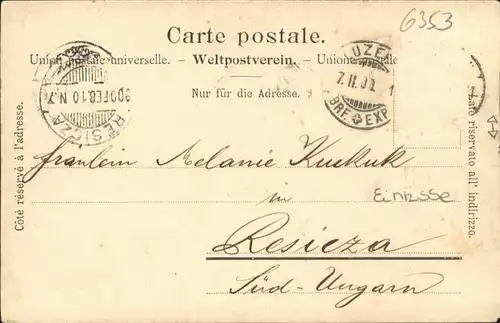 6353
Carte postale.
Union postale universelle. – Weltpostverein. – Unione postale
Nur für die Adresse.
Côté réservé à l'adresse.
Lato riservato all' indirizzo.
LUZERN
7.II.00
BRF. EXP.
RESICZA
900 FEB. 10 N. 7
Fraulein Melanie Kuckuk
in
Einksse
Resicza
Süd-Ungarn